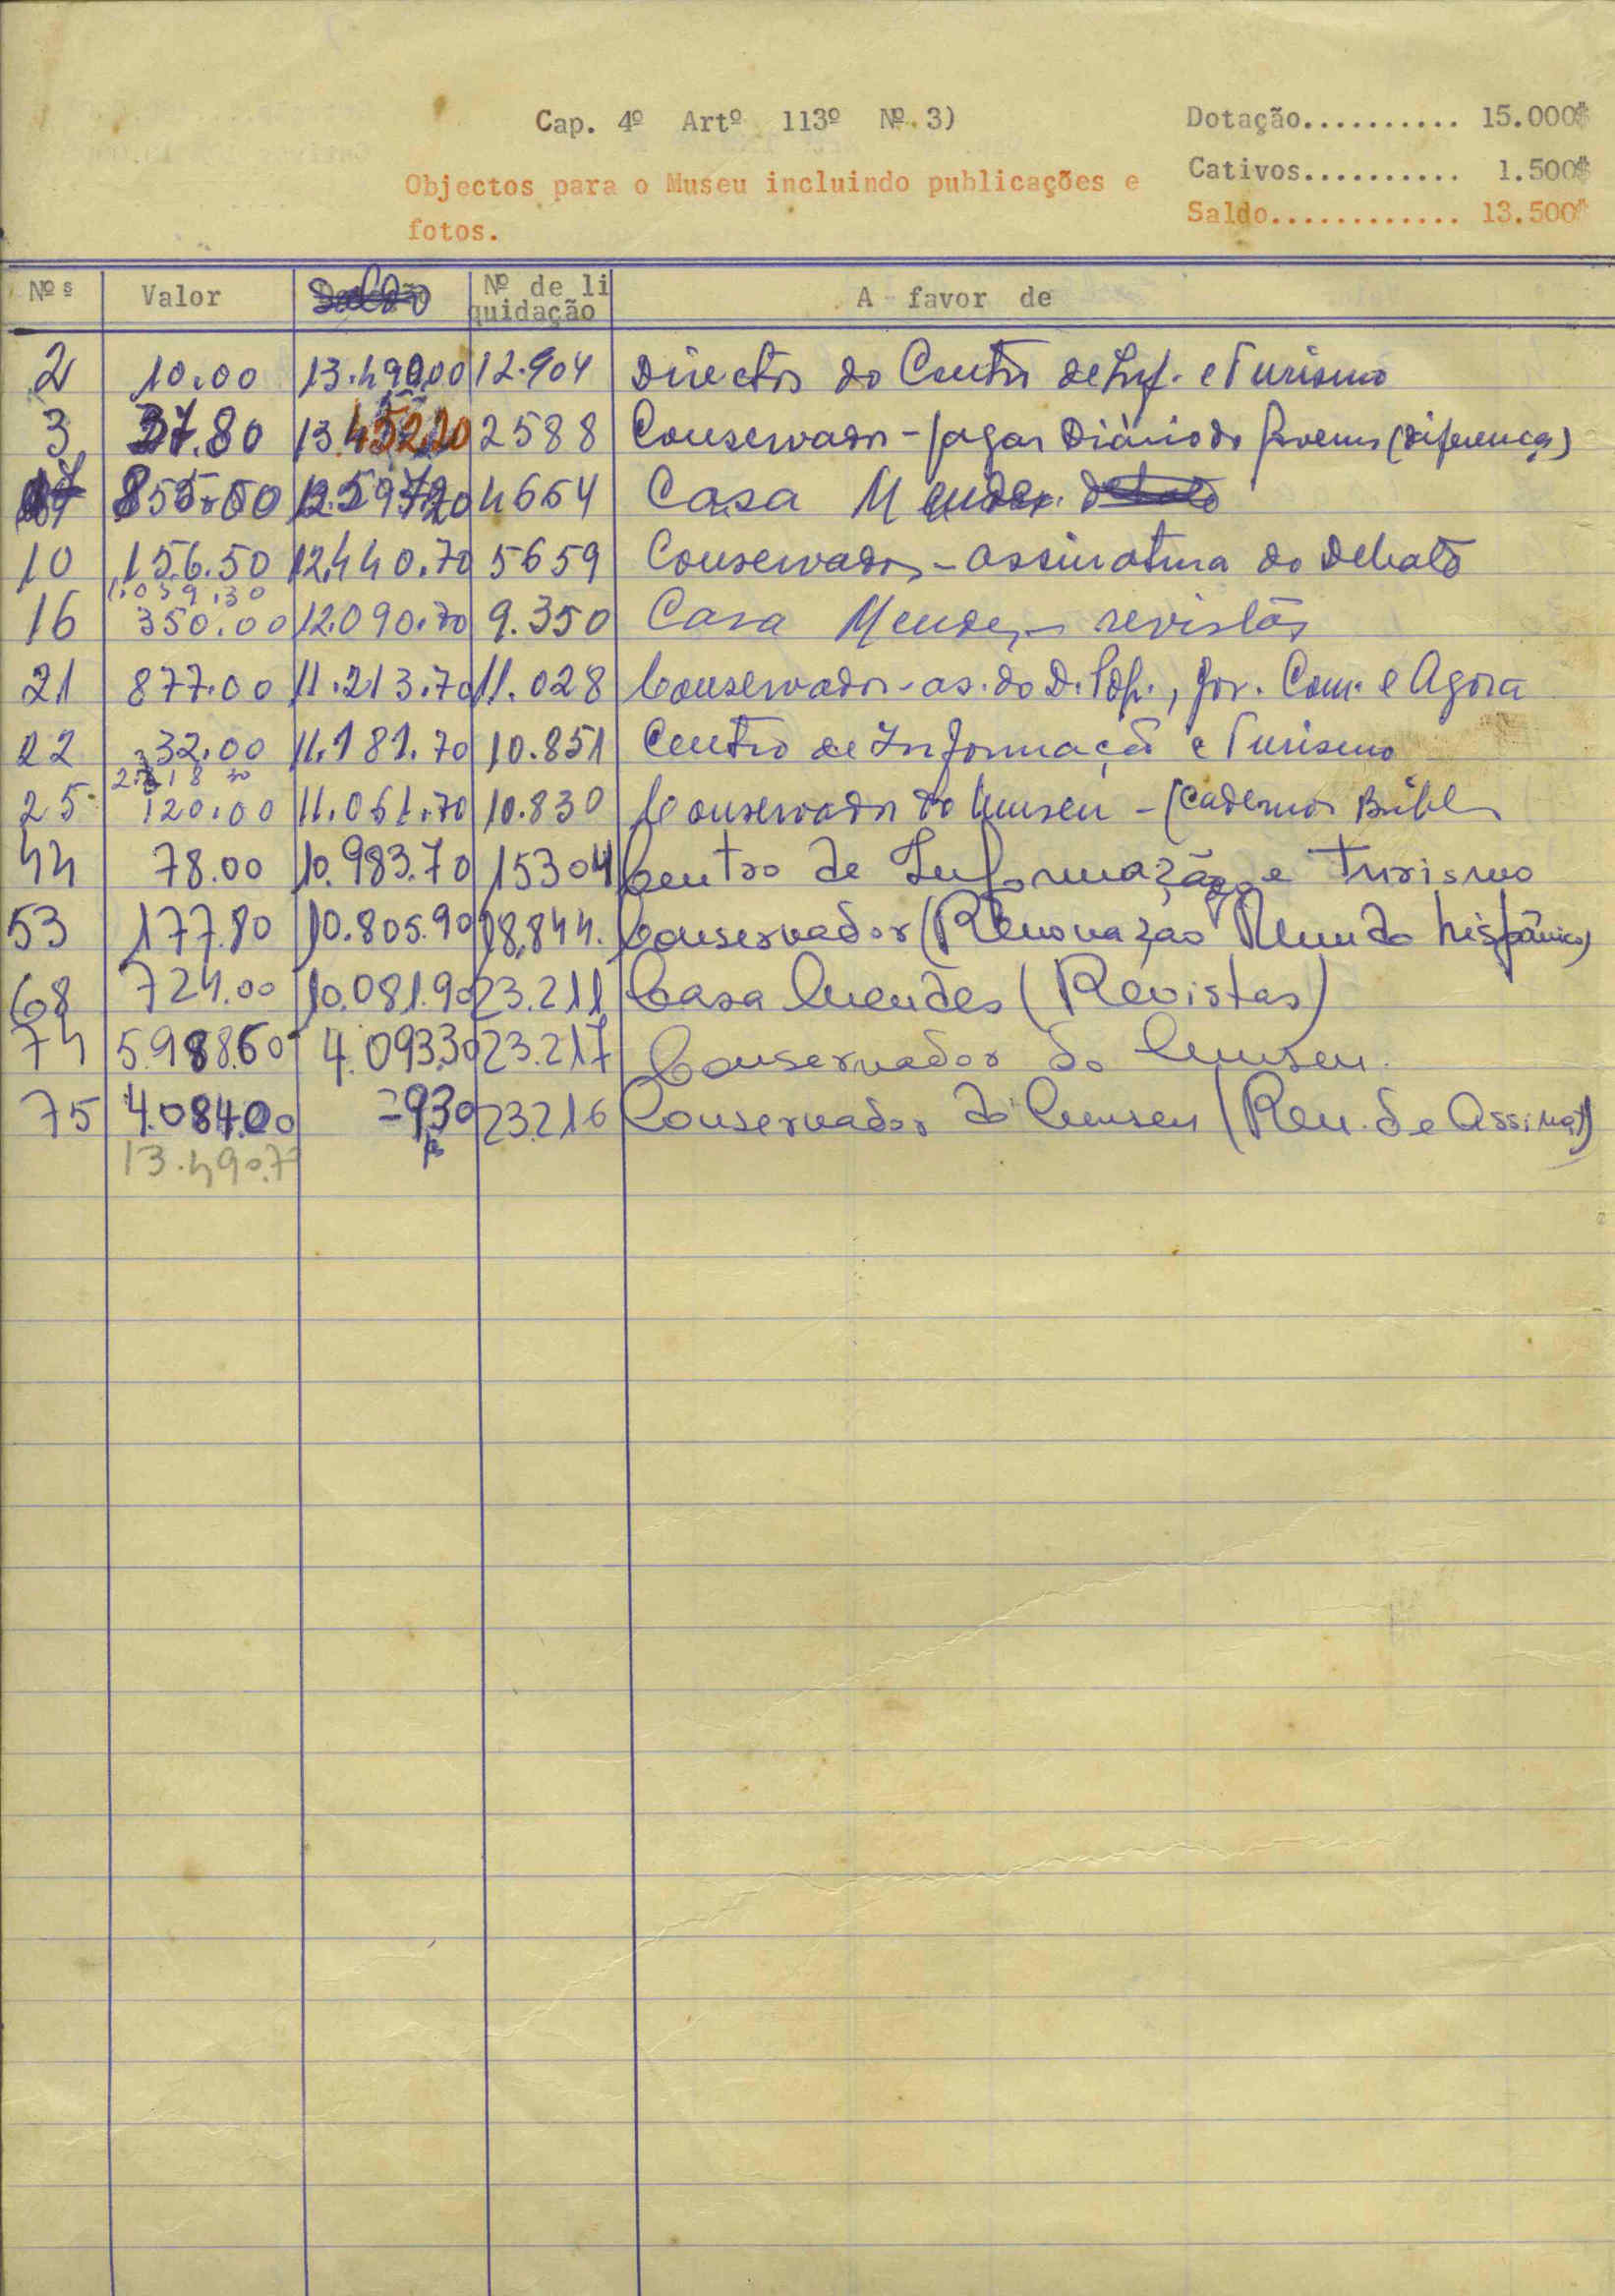 Cap. 4º Artº 113º Nº 3)
Dotação.......... 15.000$
Objectos para o Museu incluindo publicações e
fotos.
Cativos.......... 1.500$
Saldo............ 13.500$
Nºs Valor Nº de li
quidação A favor de
2 10.00 13.490.00 12.904 Director do Centro de Inf. e Turismo
3 37.80 13.452.20 2588 Conservador - pagar Diário do (diferença)
855.00 12.597.20 4654 Casa Mendes
10 156.50 12.440.70 5659 Conservador - assinatura do Debate
1.059.30
16 350.00 12.090.70 9.350 Casa Mendes - revistas
21 877.00 11.213.70 11.028 Conservador - as. do D. Pop., Jor. Com. e Agora
22 32.00 11.181.70 10.851 Centro de Informação e Turismo
25 120.00 11.061.70 10.830 Conservador do Museu - (Cadernos
44 78.00 10.983.70 15304 Centro de Informação e Turismo
53 177.80 10.805.90 18.844. Conservador (Renovação Mundo hispânico)
68 724.00 10.081.90 23.211 Casa Mendes (Revistas)
74 5988.60 4.093.30 23.217 Conservador do Museu.
75 4.084.00 =9.30 23.216 Conservador do Museu (Ren. de Assinat)
13.490.7